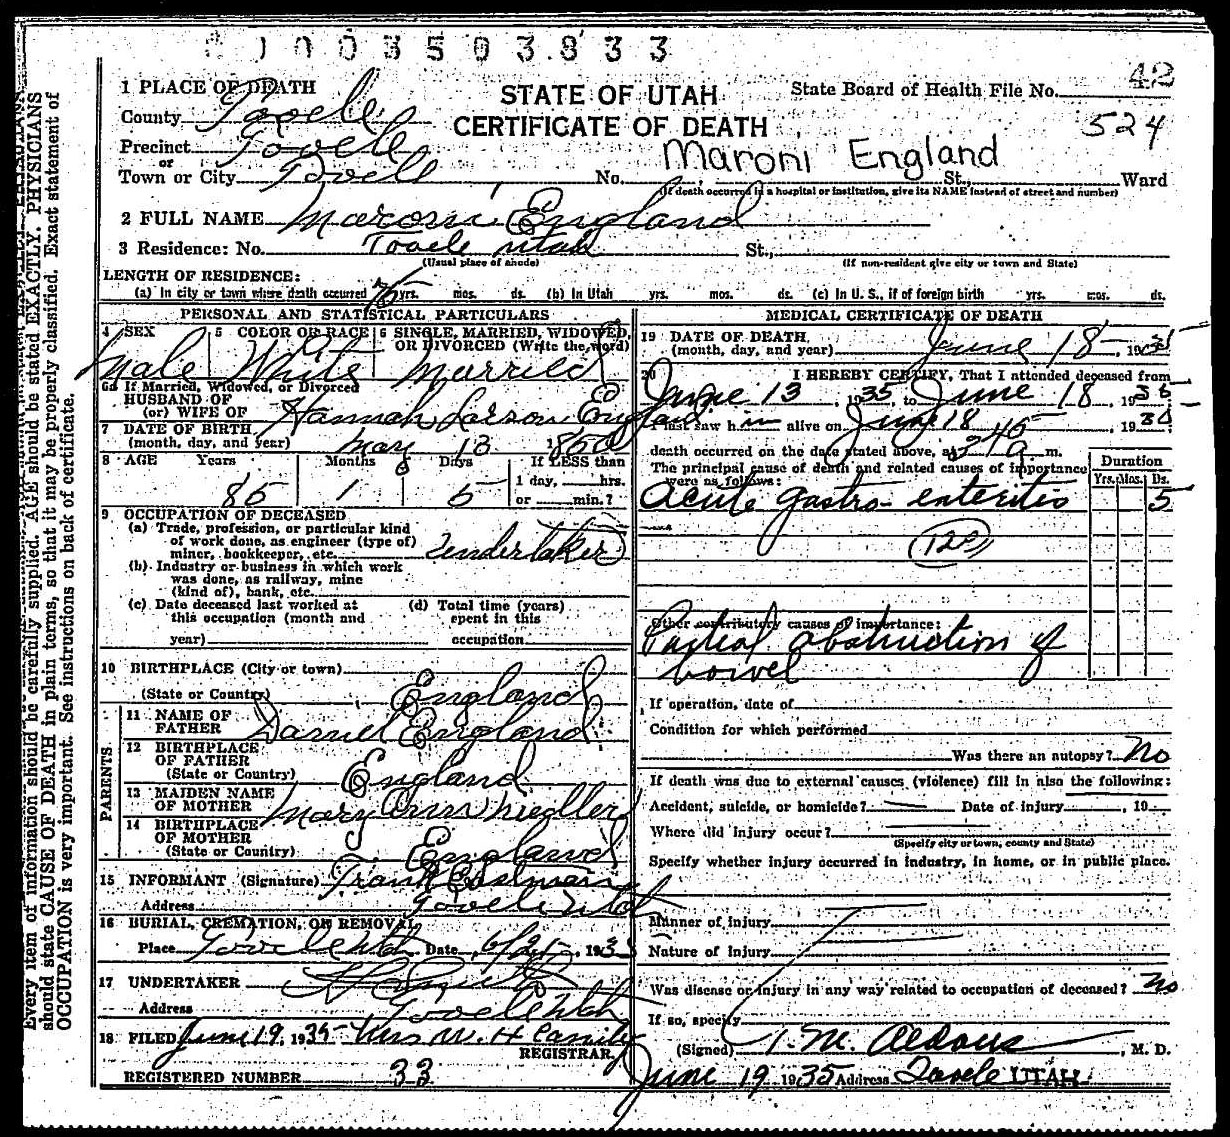 1003503833
STATE OF UTAH
CERTIFICATE OF DEATH
State Board of Health File No. 42
524
Maroni England
1 PLACE OF DEATH
County Tooele
Precinct Tooele
or
Town or City Tooele No. St., Ward
(If death occurred in a hospital or institution, give its NAME instead of street and number)
2 FULL NAME Maroni England
3 Residence: No. Tooele Utah St.,
(Usual place of abode) (If non-resident give city or town and State)
LENGTH OF RESIDENCE:
(a) In city or town where death occurred yrs. mos. ds. (b) In Utah yrs. mos. ds. (c) In U. S., if of foreign birth yrs. mos. ds.
PERSONAL AND STATISTICAL PARTICULARS
4 SEX 5 COLOR OR RACE 6 SINGLE, MARRIED, WIDOWED, OR DIVORCED (Write the word)
Male White Married
6a If Married, Widowed, or Divorced
HUSBAND OF
(or) WIFE OF Hannah Larson England
7 DATE OF BIRTH
(month, day, and year) May 13 1850
8 AGE Years Months Days If LESS than
1 day, hrs.
or min.?
85 1 5
9 OCCUPATION OF DECEASED
(a) Trade, profession, or particular kind
of work done, as engineer (type of)
miner, bookkeeper, etc. Undertaker
(b) Industry or business in which work
was done, as railway, mine
(kind of), bank, etc.
(c) Date deceased last worked at
this occupation (month and
year)
(d) Total time (years)
spent in this
occupation
10 BIRTHPLACE (City or town)
(State or Country) England
PARENTS.
11 NAME OF
FATHER Daniel England
12 BIRTHPLACE
OF FATHER
(State or Country) England
13 MAIDEN NAME
OF MOTHER Mary Ann
14 BIRTHPLACE
OF MOTHER
(State or Country) England
15 INFORMANT (Signature) Frank
Address Tooele Utah
16 BURIAL, CREMATION, OR REMOVAL,
Place Tooele Utah Date 6/21, 193
17 UNDERTAKER
Address Tooele Utah
18 FILED June 19, 1935 Mrs W. H
REGISTRAR.
REGISTERED NUMBER 33
MEDICAL CERTIFICATE OF DEATH
19 DATE OF DEATH,
(month, day, and year) June 18, 1935
20 I HEREBY CERTIFY, That I attended deceased from
June 13, 1935, to June 18, 1935
I last saw him alive on June 18, 1935
death occurred on the date stated above, at 245 a m.
The principal cause of death and related causes of importance
were as follows:
Duration
Yrs. Mos. Ds.
Acute gastro-enteritis 5
120
Other contributory causes of importance:
Partial obstruction of
bowel
If operation, date of
Condition for which performed
Was there an autopsy? No
If death was due to external causes (violence) fill in also the following:
Accident, suicide, or homicide? Date of injury , 19
Where did injury occur?
(Specify city or town, county and State)
Specify whether injury occurred in industry, in home, or in public place.
Manner of injury
Nature of injury
Was disease or injury in any way related to occupation of deceased? No
If so, specify
(Signed) , M. D.
June 19 1935 Address Tooele UTAH
Every item of information should be carefully supplied. AGE should be stated EXACTLY. PHYSICIANS
should state CAUSE OF DEATH in plain terms, so that it may be properly classified. Exact statement of
OCCUPATION is very important. See instructions on back of certificate.